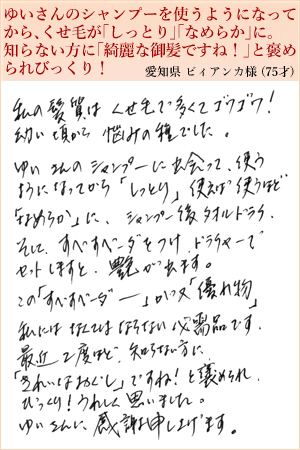 ゆいさんのシャンプーを使うようになって
から、くせ毛が「しっとり」「なめらか」に。
知らない方に「綺麗な御髪ですね！」と褒め
られびっくり！
愛知県 ビィアンカ様（75才）
私の髪質は くせ毛で多くてゴワゴワ！
幼い頃から 悩みの種でした。
ゆい さんの シャンプーに出会って、使う
ようになってから「しっとり」使えば使うほど
「なめらか」に、シャンプー後タオルドライ、
そして、すべすべーダをつけ、ドライヤーで
セットしますと、艶が出ます。
この「すべすべーダー」がスゴ「優れ物」
私には なくてはならない必需品です。
最近 2度ほど、知らない方に、
「きれいなおぐし」ですね！と褒められ
びっくり！うれしく思いました。
ゆいさんに 感謝お申し上げます。